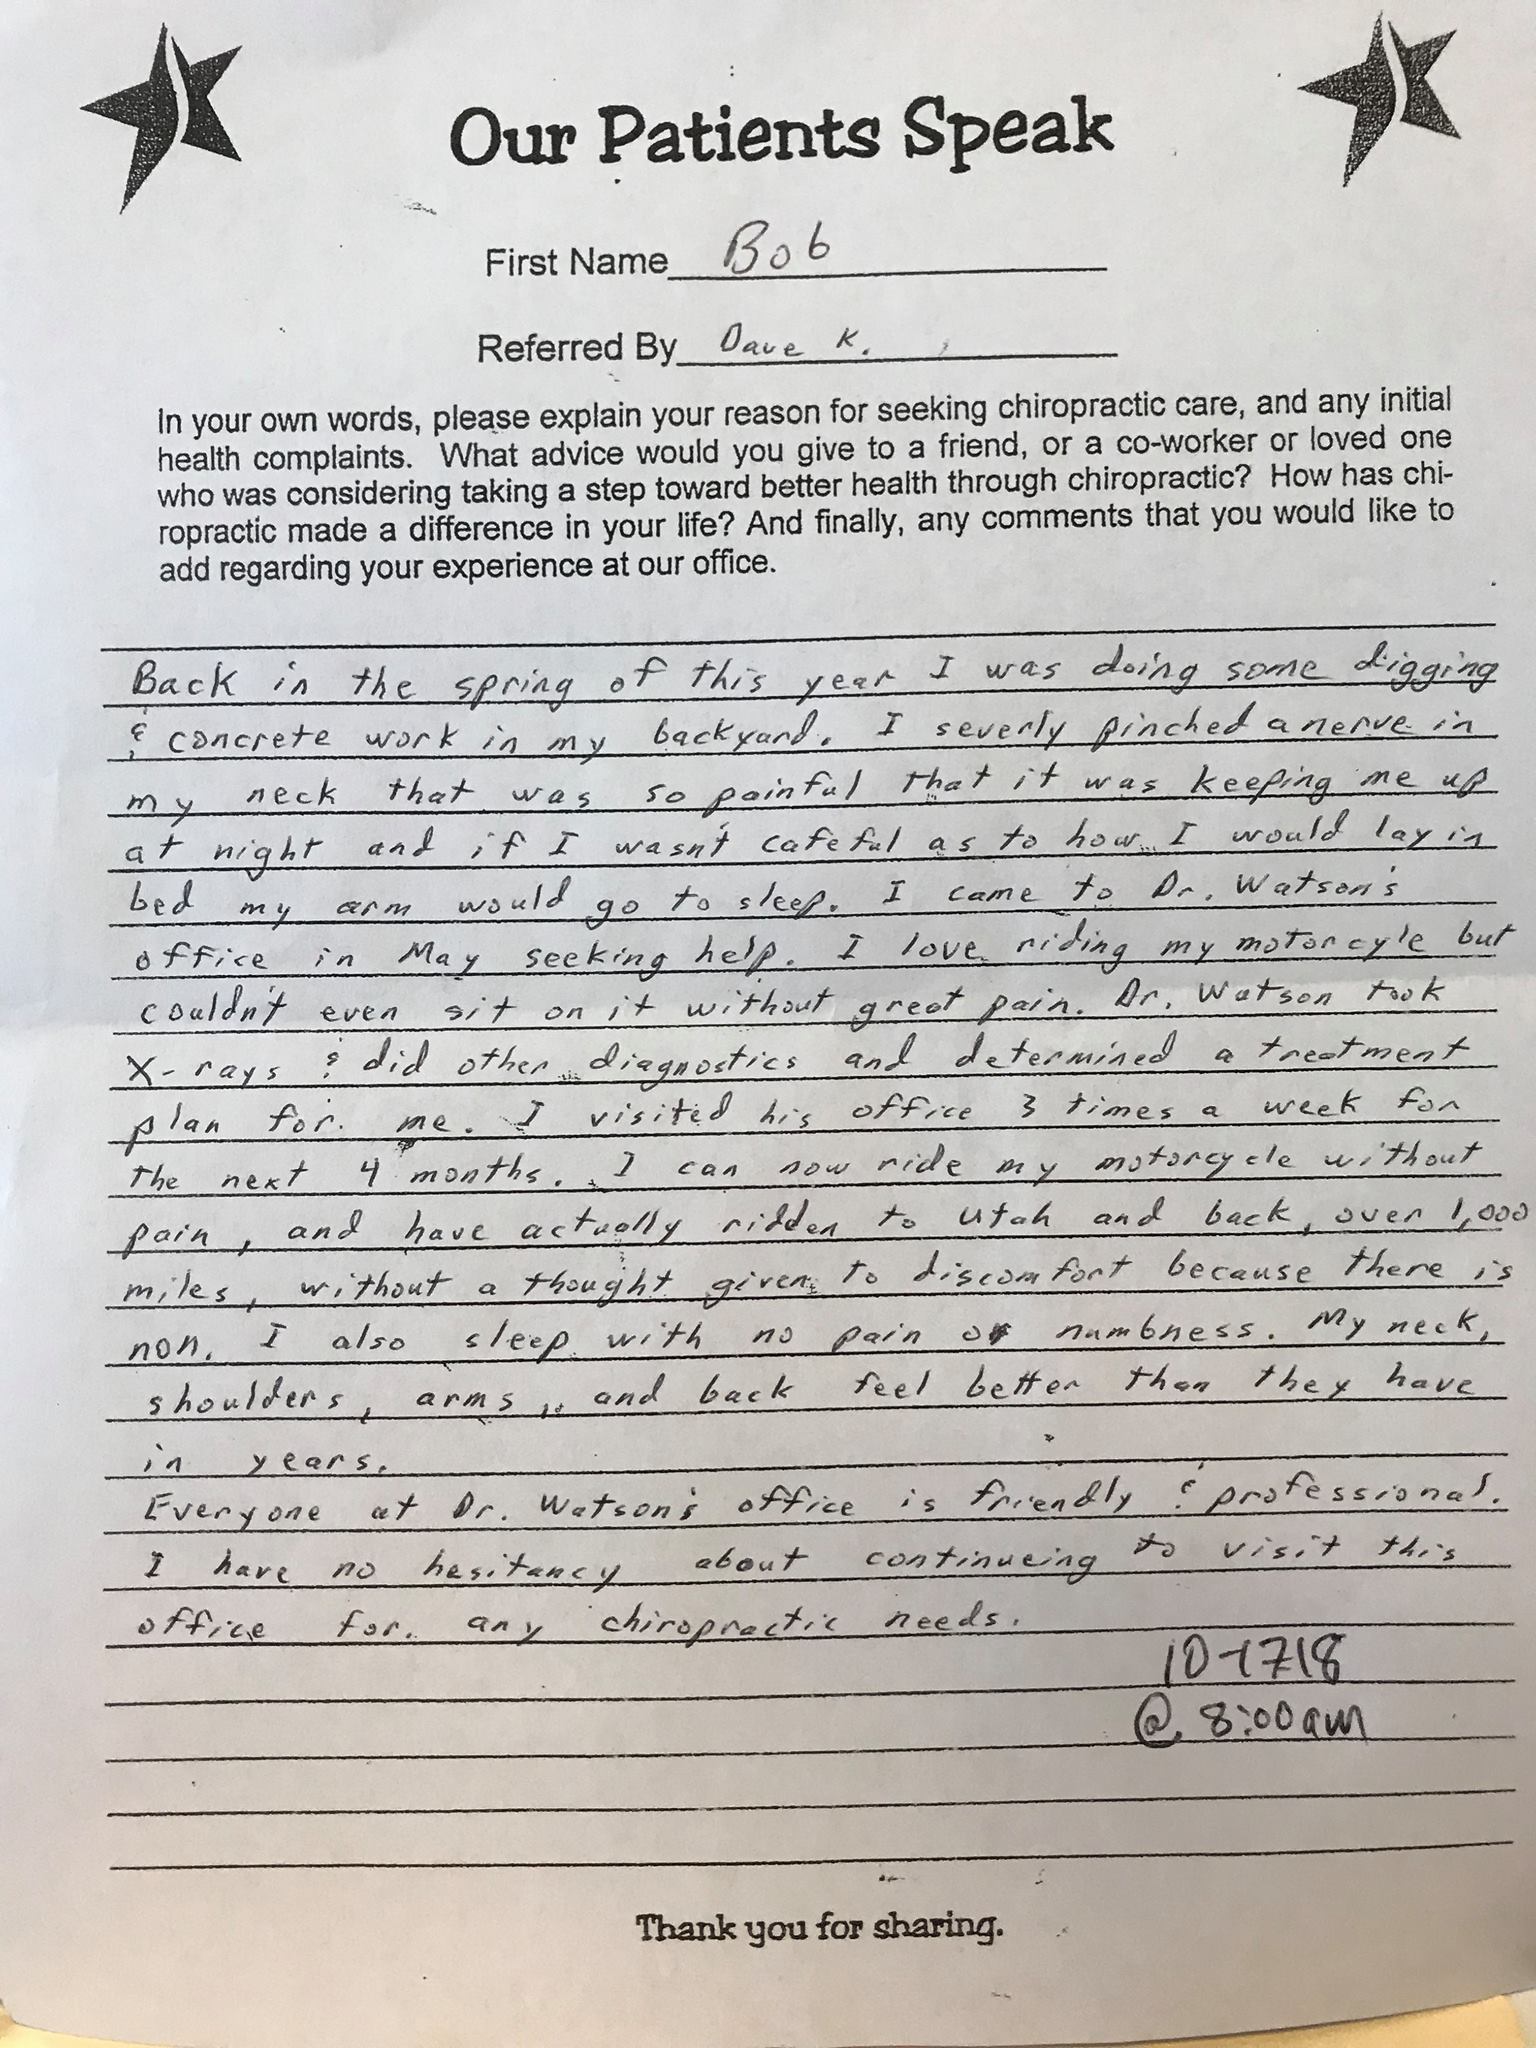 Our Patients Speak
First Name Bob
Referred By Dave K.
In your own words, please explain your reason for seeking chiropractic care, and any initial
health complaints. What advice would you give to a friend, or a co-worker or loved one
who was considering taking a step toward better health through chiropractic? How has chi-
ropractic made a difference in your life? And finally, any comments that you would like to
add regarding your experience at our office.
Back in the spring of this year I was doing some digging
& concrete work in my backyard. I severly pinched a nerve in
my neck that was so painful that it was keeping me up
at night and if I wasn't cafeful as to how I would lay in
bed my arm would go to sleep. I came to Dr. Watson's
office in May seeking help. I love riding my motorcycle but
couldn't even sit on it without great pain. Dr. Watson took
X-rays & did other diagnostics and determined a treatment
plan for me. I visited his office 3 times a week for
the next 4 months. I can now ride my motorcycle without
pain, and have actually ridden to Utah and back, over 1,000
miles, without a thought given to discomfort because there is
non. I also sleep with no pain or numbness. My neck,
shoulders, arms, and back feel better than they have
in years.
Everyone at Dr. Watson's office is friendly & professional.
I have no hesitancy about continueing to visit this
office for any chiropractic needs.
10-1718
@ 8:00am
Thank you for sharing.